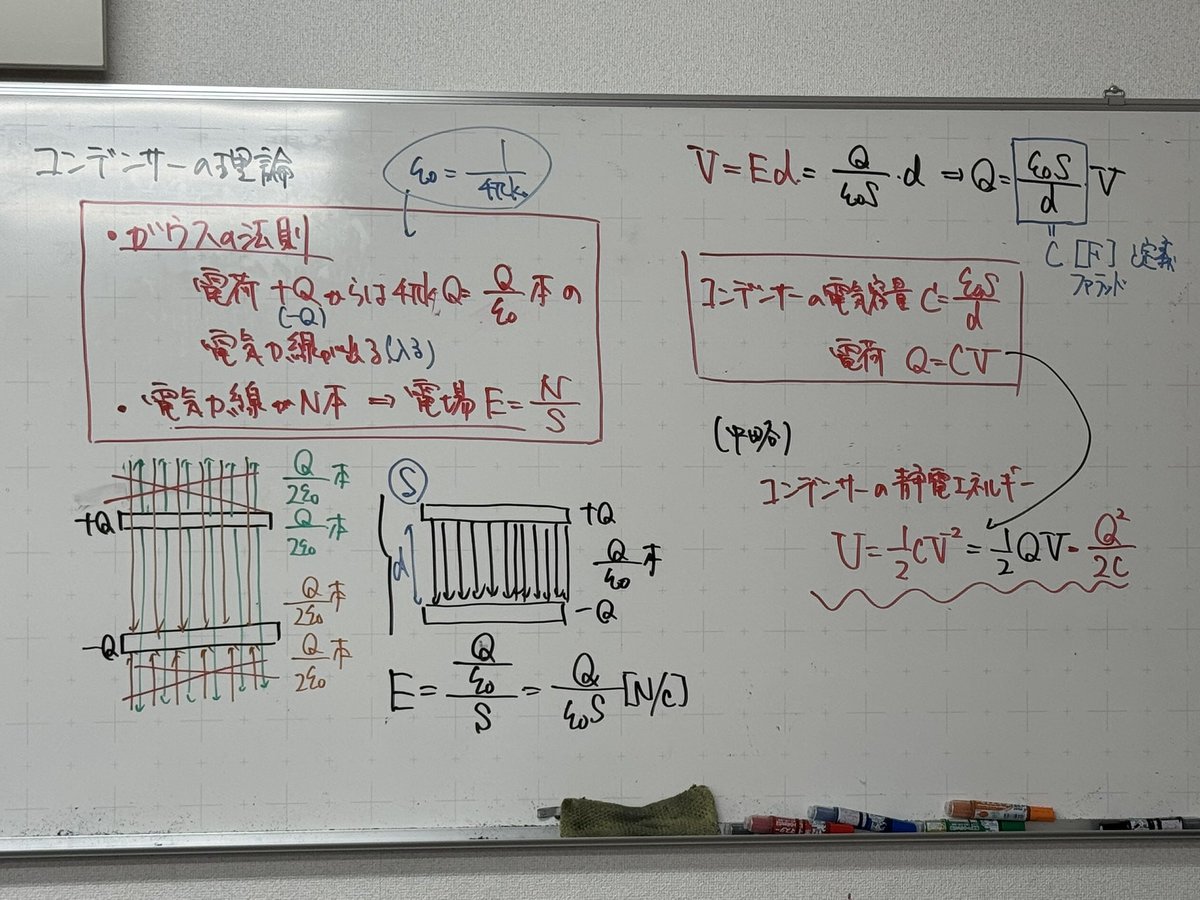 コンデンサーの理論
ε₀ = 1/4πk₀
・ガウスの法則
電荷 +Q からは 4πk₀Q = Q/ε₀ 本の
(-Q)
電気力線が出る(入る)
・電気力線が N本 ⇒ 電場 E = N/S
Q/2ε₀ 本
+Q
Q/2ε₀ 本
Q/2ε₀ 本
-Q
Q/2ε₀ 本
S
+Q
d
Q/ε₀ 本
-Q
E = (Q/ε₀)/S = Q/ε₀S [N/C]
V = Ed = Q/ε₀S · d ⇒ Q = ε₀S/d V
= C [F] と定義
ファラッド
コンデンサーの電気容量 C = ε₀S/d
電荷 Q = CV
コンデンサーの静電エネルギー
U = 1/2 CV² = 1/2 QV = Q²/2C